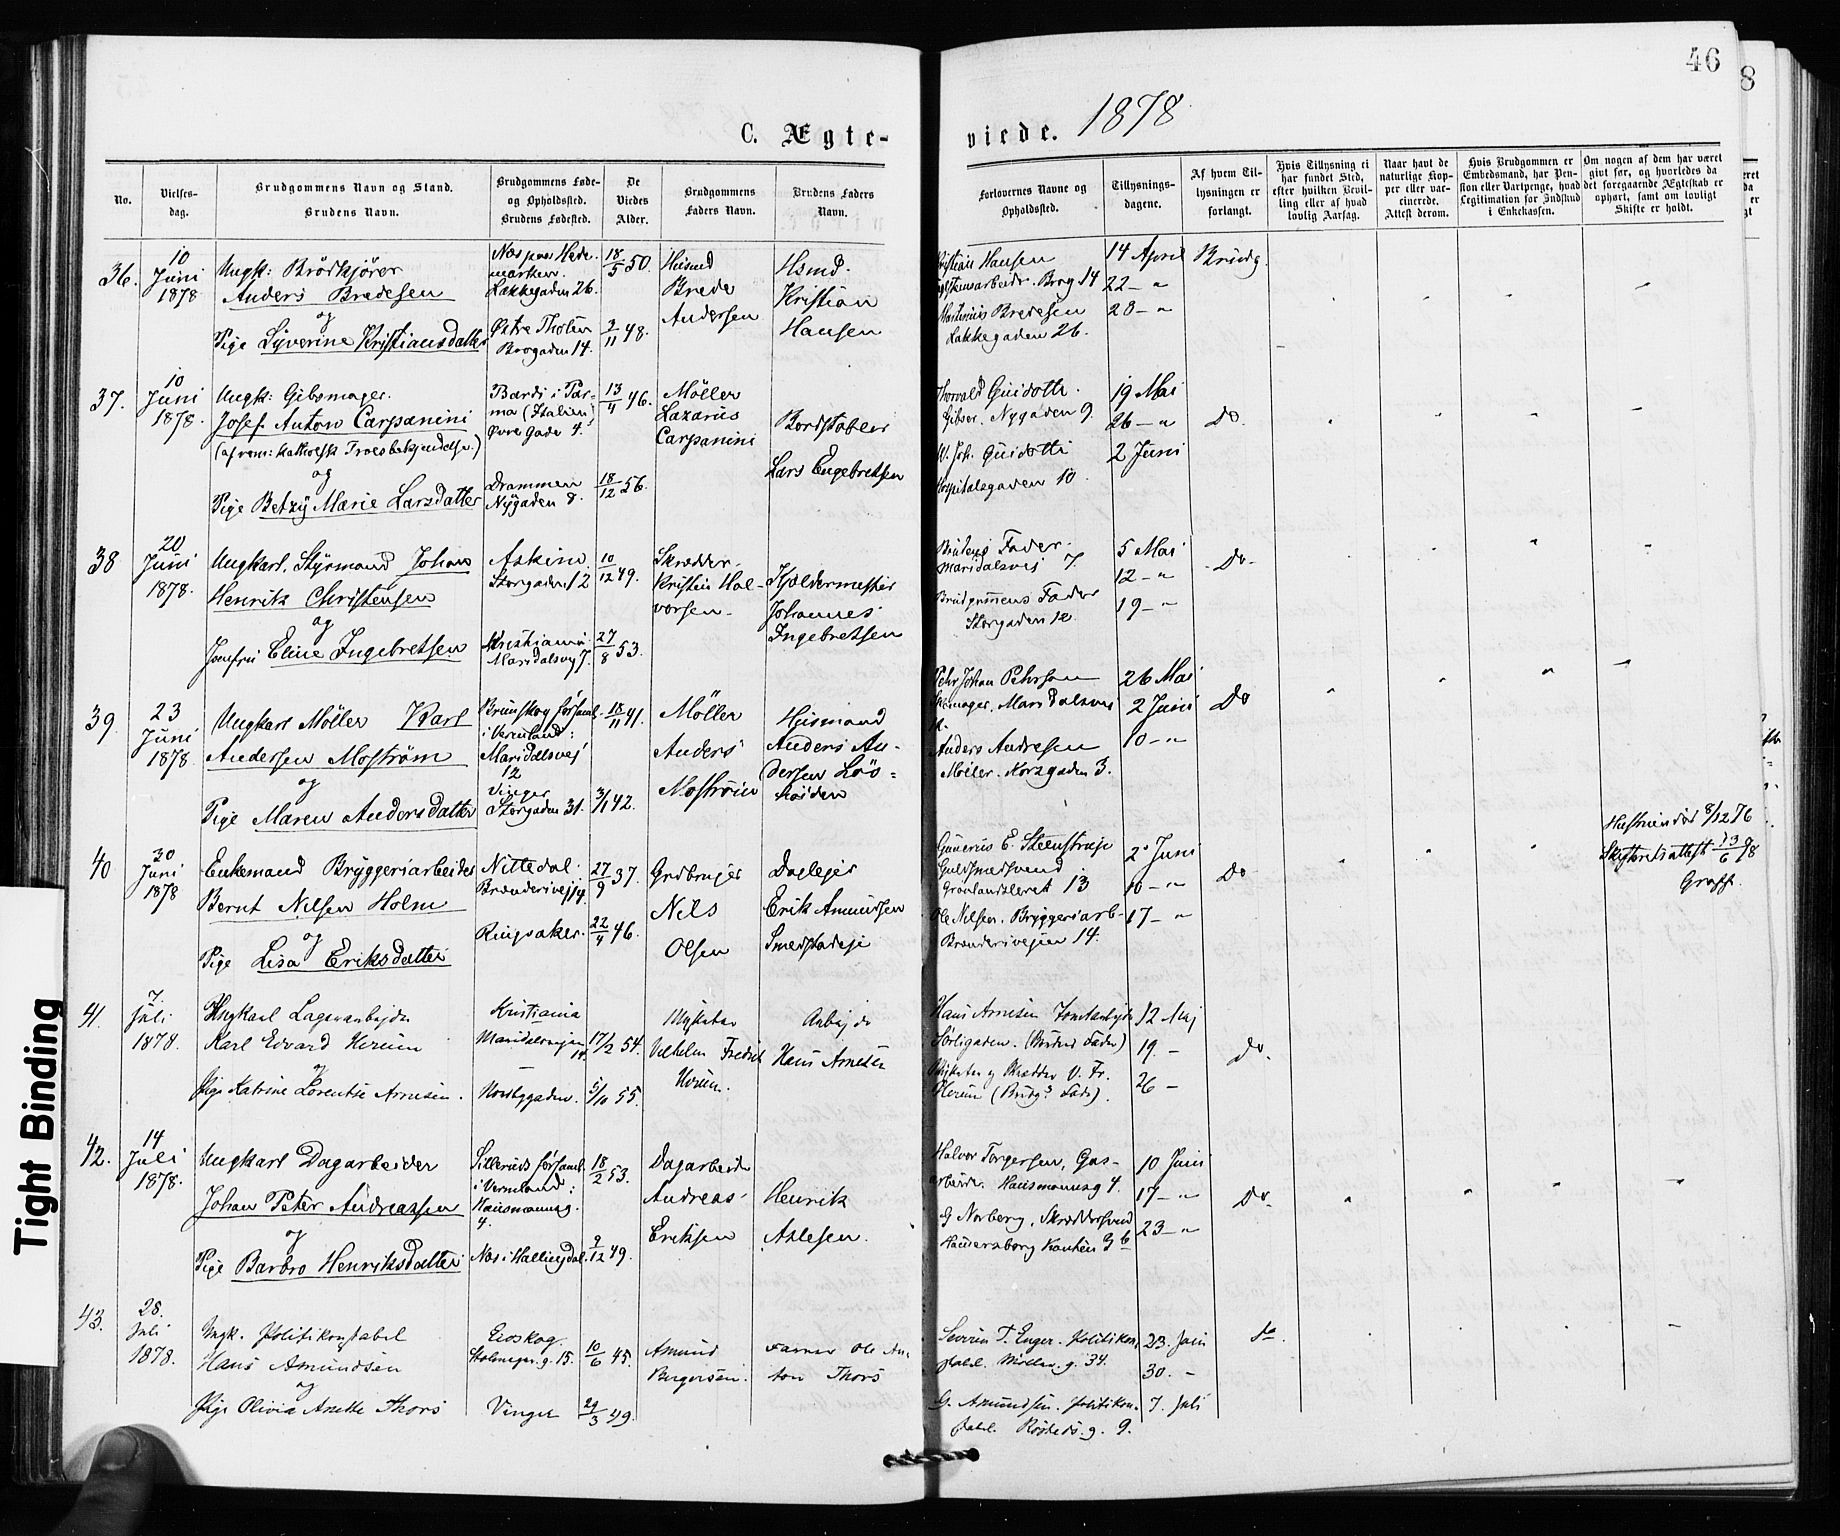 46
8
C. Ægte-
viede. 1878
No.
Vielses-
dag.
Brudgommens Navn og Stand.
Brudens Navn.
Brudgommens Føde-
og Opholdssted.
Brudens Fødested.
De
Viedes
Alder.
Brudgommens
Faders Navn.
Brudens Faders
Navn.
Forlovernes Navne og
Opholdssted.
Tillysnings-
dagene.
Af hvem Til-
lysningen er
forlangt.
Hvis Tillysning ei
har fundet Sted,
efter hvilken Bevil-
ling eller af hvad
lovlig Aarsag.
Naar havt de
naturlige Kop-
per eller vac-
cinerede.
Attest derom.
Hvis Brudgommen er
Embedsmand, har Pen-
sion eller Vartpenge, hvad
Legitimation for Indskud
i Enkekassen.
Om nogen af dem har været
gift før, og hvorledes da
det foregaaende Ægteskab er
ophørt, samt om lovligt
Skifte er holdt.
36.
10
Juni
1878
Ungk: Brödkjörer
Anders Bredesen
og
Pige Syverine Kristiansdatter
Næs paa Hede-
marken.
Lakkegaden 26.
Østre Thoten
Brogaden 14.
18/5 50.
2/11 48.
Husmd
Brede
Andersen
Hsmd.
Kristian
Hansen
Kristian Hansen
Brog 14
Martinius Bredesen
Lakkegaden 26.
14 April
22 – "
28 – "
Brudg.
37.
10
Juni
1878.
Ungk: Gibsmager.
Josef Anton Carpanini
(af rom: katholsk Troesbekjendelse.)
og
Pige Betzy Marie Larsdatter
Bardi i Par-
ma (Italien)
Øvre Gade 4.
Drammen
Nygaden 8.
13/4 46.
18/12 56.
Möller
Lazarus
Carpanini
Bordstabler
Lars Engebretsen
Thorvald Guidotti.
Gibser, Nygaden 9.
W. Joh. Guidotti
Hospitalsgaden 10.
19 Mai
26 – "
2 Juni
Do.
38
20
Juni
1878.
Ungkarl, Styrmand Johan
Henrik Christensen
og
Jomfru Eline Ingebretsen
Askim
Storgaden 12
Kristiania.
Maridalsvej 7.
10/12 49.
27/8 53.
Skrædder.
Kristen Hal-
vorsen.
Kjældermester
Johannes
Ingebretsen
Brudens Fader.
Maridalsvej 7.
Brudgommens Fader
Storgaden 12.
5 Mai
12 – "
19 – "
Do.
39.
23
Juni
1878
Ungkarl Möller Karl
Andersen Moström
og
Pige Maren Andersdatter
Brunskog församl.
i Vermland:
Maridalsvej
12
Vinger
Storgaden 31.
18/11 41.
3/1 42.
Möller
Anders
Moström
Husmand
Anders An-
dersen
Pehr Johan Pehrson
Maridalsvei
Anders Andresen
Möller. Korsgaden 3.
26 Mai
2 Juni
10 – "
Do
40
30
Juni
1878
Enkemand Bryggeriarbeider
Bernt Nilsen Holm
og
Pige Lisa Eriksdatter
Nittedal.
Brænderivej 14.
Ringsaker.
27/9 37.
22/4 46.
Grdbruger
Nils
Olsen
Daglejer
Erik Amundsen
Smedstadeje
Gunerius E. Steenstrup
Guldsmedsvend
Grønlandsleret 13
Ole Nilsen. Bryggeriarb-
Brænderivejen 14.
2 Juni
10 – "
17 – "
Do
Hustruen død 8/12 76
Skifteretsattest 13/6 78
41.
7.
Juli
1878.
Ungkarl Lagerarbejder
Karl Edvard
og
Pige Katrine Lorentse Arnesen.
Kristiania
Maridalsvejen
14.
Nordbygaden.
17/2 54.
5/10 55.
Vilhelm Fredrik
Arbejder
Hans Arnesen
Hans Arnesen Tomtearbejder
(Brudens Fader)
Skrædder V. Fr.
(Brudg.s Fader).
12 Maj
19. –
26 –
Do.
42.
14
Juli
1878.
Ungkarl Dagarbeider
Johan Peter Andreassen
og
Pige Barbro Henriksdatter
Silleruds församl.
i Vermland:
Hausmannsg.
4.
Næs i Hallingdal.
18/2 53.
2/12 49.
Dagarbeider
Andreas
Eriksen
Henrik
Aslesen.
Halvor Torgersen, Gas-
arbeider. Hausmannsg 4.
G Norberg, Skræddersvend
10 Juni
17 – "
23 – "
Do.
43.
28.
Juli
1878.
Ungk. Politikonstabel
Hans Amundsen
og
Pige Olivia Anette Thors
Eidskog
Stolmager.g. 15.
Vinger
10/6 45.
29/3 49.
Amund
Bergersen.
Farver Ole An-
ton Thors
Severin T. Enger. Politikon-
stabel. Møller. g. 34.
G. Amundsen. Politikon-
stabel. Rødfeds. g. 9.
23. Juni
30. –
7. Juli
do.
Tight Binding